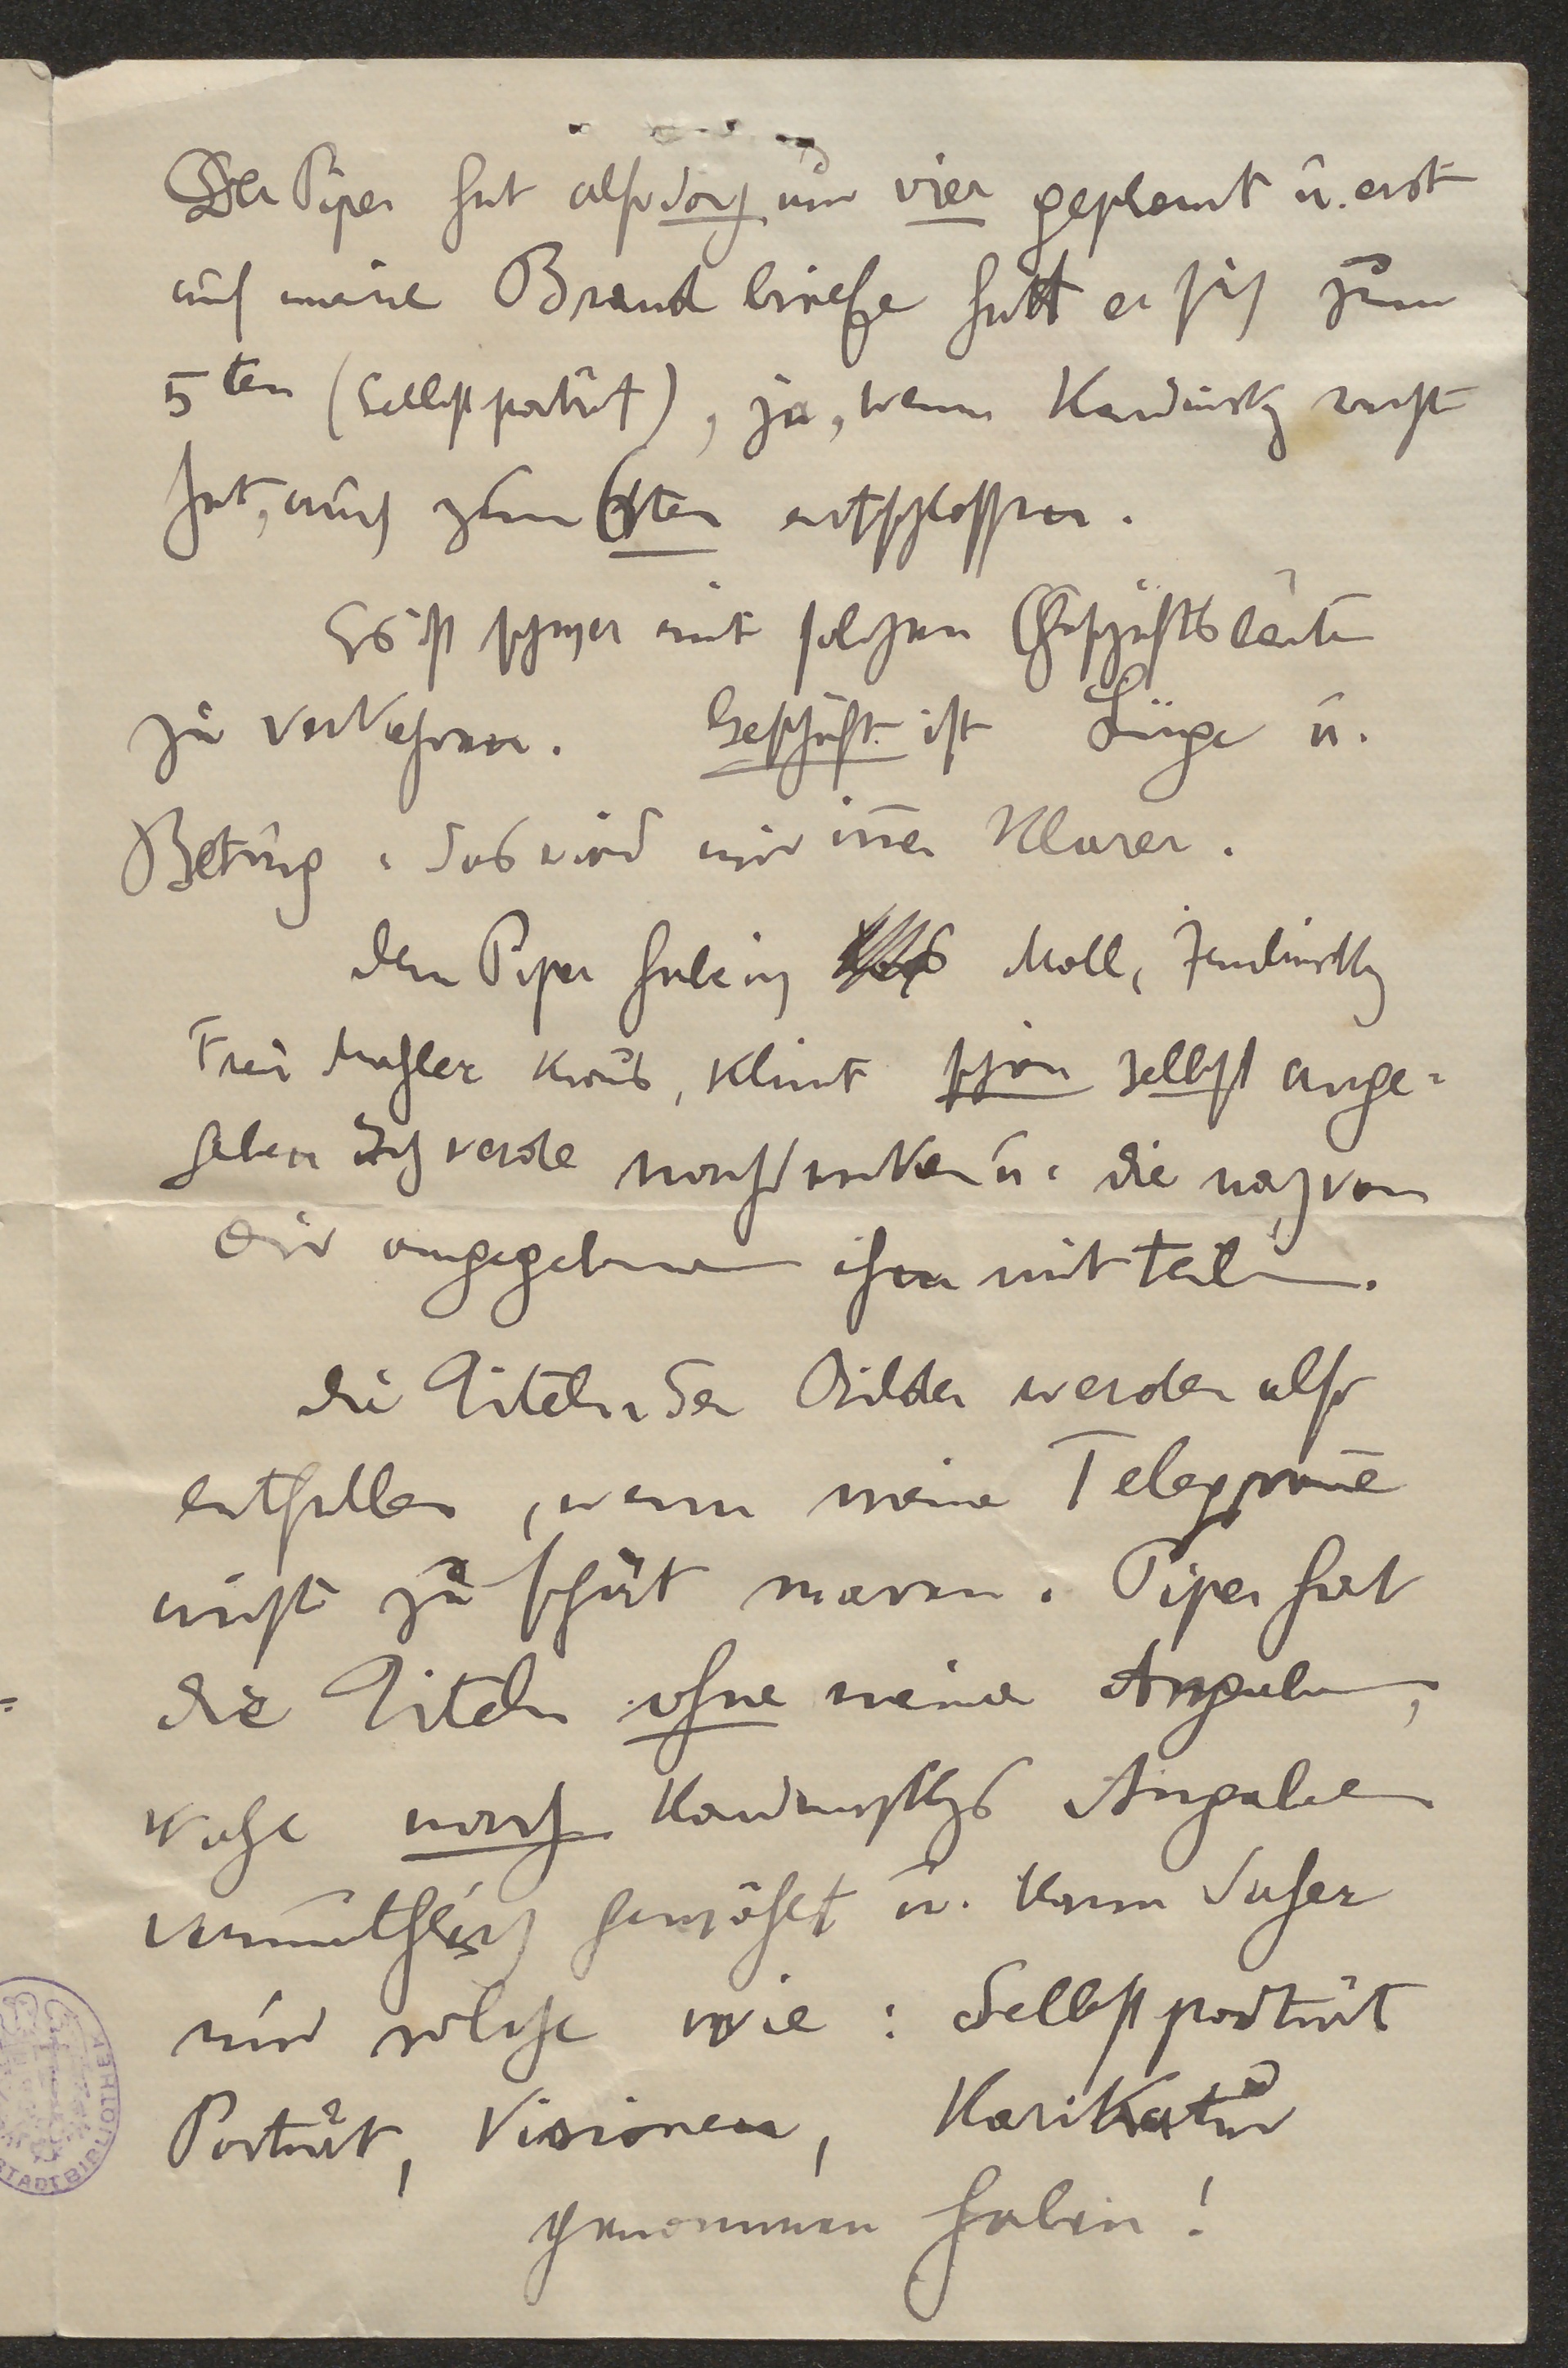 Der Piper hat also doch nur vier geplant u. erst
auf meine Brandbriefe hatt er sich zum
5ten (Selbstporträt), ja, wenn Kandinsky recht
hat, auch zum 6ten entschlossen.
Es ist schwer mit solchen Geschäftsleuten
zu verkehren. Geschäft ist Lüge u.
Betrug. Das wird mir im̄er klarer.
Dem Piper habe ich Moll, Zemlinsky
Frau Mahler Kraus, Klimt schon selbst ange-
geben Ich werde nachdenken u. die noch von
Dir angegebenen ihm mitteilen.
Die Titeln der Bilder werden also
entfallen, wenn meine Telegram̄e
nicht zu spät waren. Piper hat
die Titeln ohne meine Angaben,
wohl nach Kandinskys Angaben
vermuthlich gewählt u. kann daher
nur solche wie: Selbstporträt
Porträt, Visionen, Karikatur
genommen haben!
STADTBIBLIOTHEK